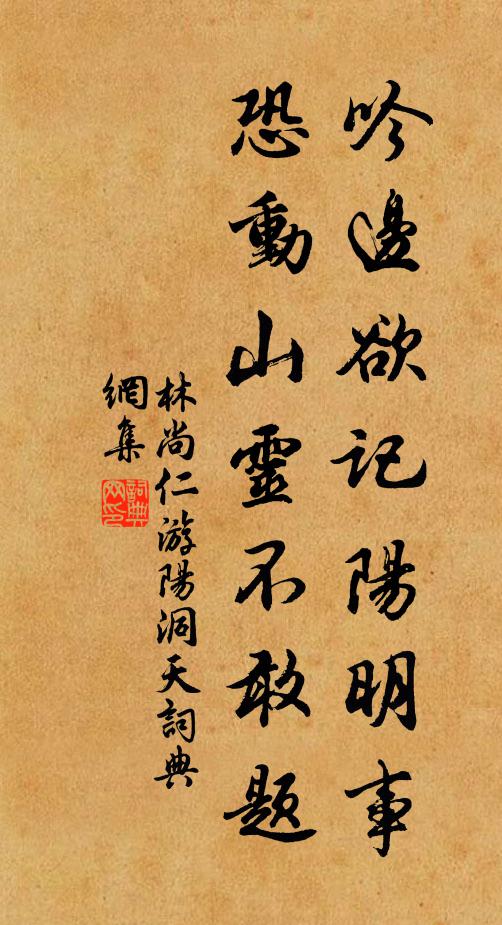 吟邊欲記陽明事
恐動山靈不敢题
林尚仁游陽洞天詞典
網集
詞典
网印